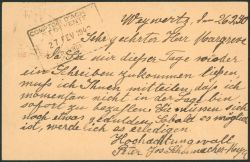 Weywertz, den 26.2.20.
COMPTOIR D'ACH
27 FEV 192
Sehr geehrter Herr Margreve
Da Sie mir dieser Tage wieder
ein Schreiben zukommen liessen,
muss ich Ihnen mitteilen, dass ich
momentan nicht in der Lage bin
sofort zu bezahlen. Sie müssen sich
noch etwas gedulden. Sobald es möglich
ist, werde ich es erledigen.
Hochachtungsvoll
Peter Jos.